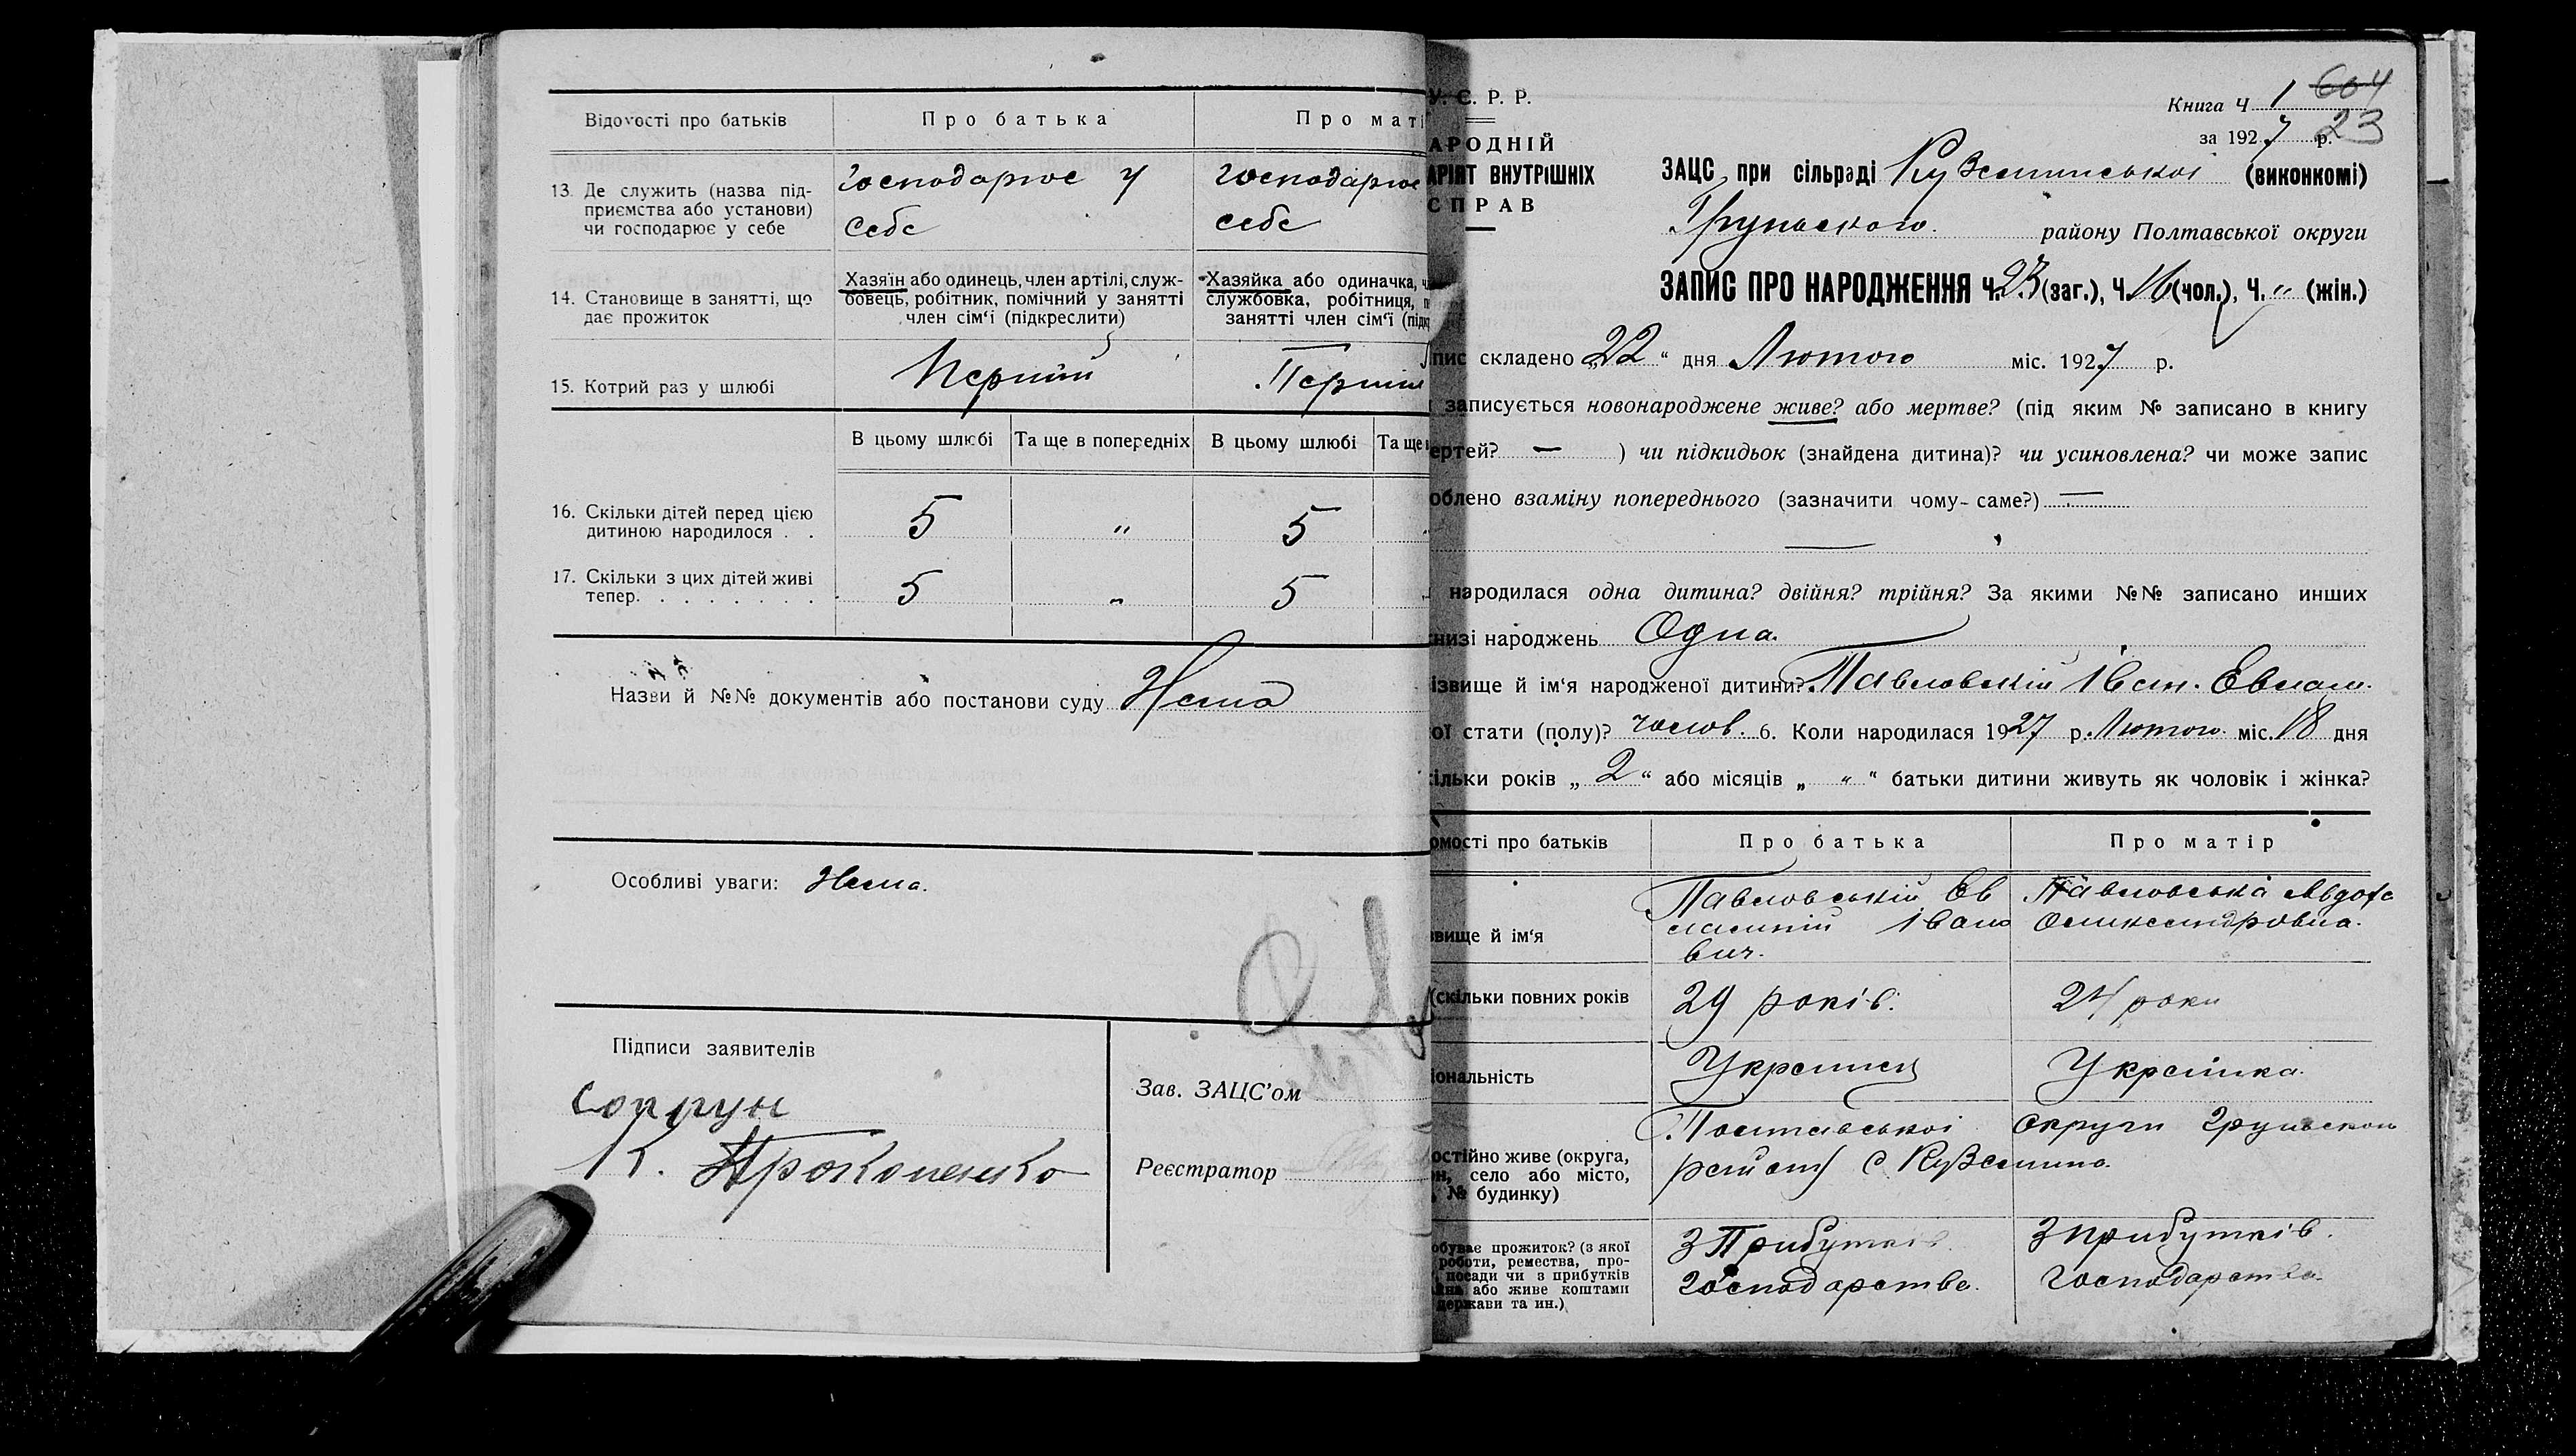 Відомості про батьків
Про батька
Про маті
13. Де служить (назва під-
приємства або установи)
чи господарює у себе
господарює у
себе
господарює
себе
14. Становище в занятті, що
дає прожиток
Хазяїн або одинець, член артілі, служ-
бовець, робітник, помічний у занятті
член сім'ї (підкреслити)
Хазяйка або одиначка, ч
службовка, робітниця, п
занятті член сім'ї (підк
15. Котрий раз у шлюбі
Перший
Перший
В цьому шлюбі
Та ще в попередніх
В цьому шлюбі
Та ще
16. Скільки дітей перед цією
дитиною народилося . .
5 " 5
17. Скільки з цих дітей живі
тепер. . . . . . . .
5 " 5
Назви й №№ документів або постанови суду Нема
Особливі уваги: Нема.
Підписи заявителів
Сопрун
К. Прокопенко
Зав. ЗАЦС'ом
Реєстратор
У. С. Р. Р.
АРОДНІЙ
АРІЯТ ВНУТРІШНІХ
СПРАВ
Книга Ч 1 604
за 1927 р. 23
ЗАЦС при сільраді Куземинської (виконкомі)
Груньского району Полтавської округи
ЗАПИС ПРО НАРОДЖЕННЯ Ч. 23 (заг.), Ч. 16 (чол.), Ч. " (жін.)
пис складено „22" дня Лютого міс. 1927 р.
записується новонароджене живе? або мертве? (під яким № записано в книгу
ертей? — ) чи підкидьок (знайдена дитина)? чи усиновлена? чи може запис
облено взаміну попереднього (зазначити чому-саме?) —
народилася одна дитина? двійня? трійня? За якими №№ записано инших
низі народжень Одна.
ізвище й ім'я народженої дитини? Павловскій Іван. Евлам.
ої стати (полу)? чолов. 6. Коли народилася 1927 р. Лютого міс. 18 дня
ільки років „2" або місяців „ " " батьки дитини живуть як чоловік і жінка?
омості про батьків
Про батька
Про матір
звище й ім'я
Павловський Ев
лампій Івано
вич.
Павловська Авдотя
Олександровна.
(скільки повних років
29 років.
24 роки
іональність
Украінец
Украінка.
остійно живе (округа,
он, село або місто,
, № будинку)
Полтавської округи Груньского
району с Куземино.
обуває прожиток? (з якої
роботи, ремества, про-
, посади чи з прибутків
йна або живе коштами
держави та ин.)
З Прибутків
господарства.
З прибутків.
господарства.